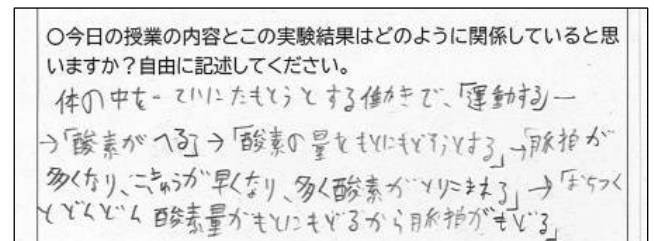 ○今日の授業の内容とこの実験結果はどのように関係していると思
いますか？自由に記述してください。
体の中を一ていにたもとうとする働きで、「運動する」―
→「酸素がへる」→「酸素の量をもとにもどそうとする」→「脈拍が
多くなり、こきゅうが早くなり、多く酸素がとりこまれる」→「おちつく
とどんどん酸素量がもとにもどるから脈拍がもどる」